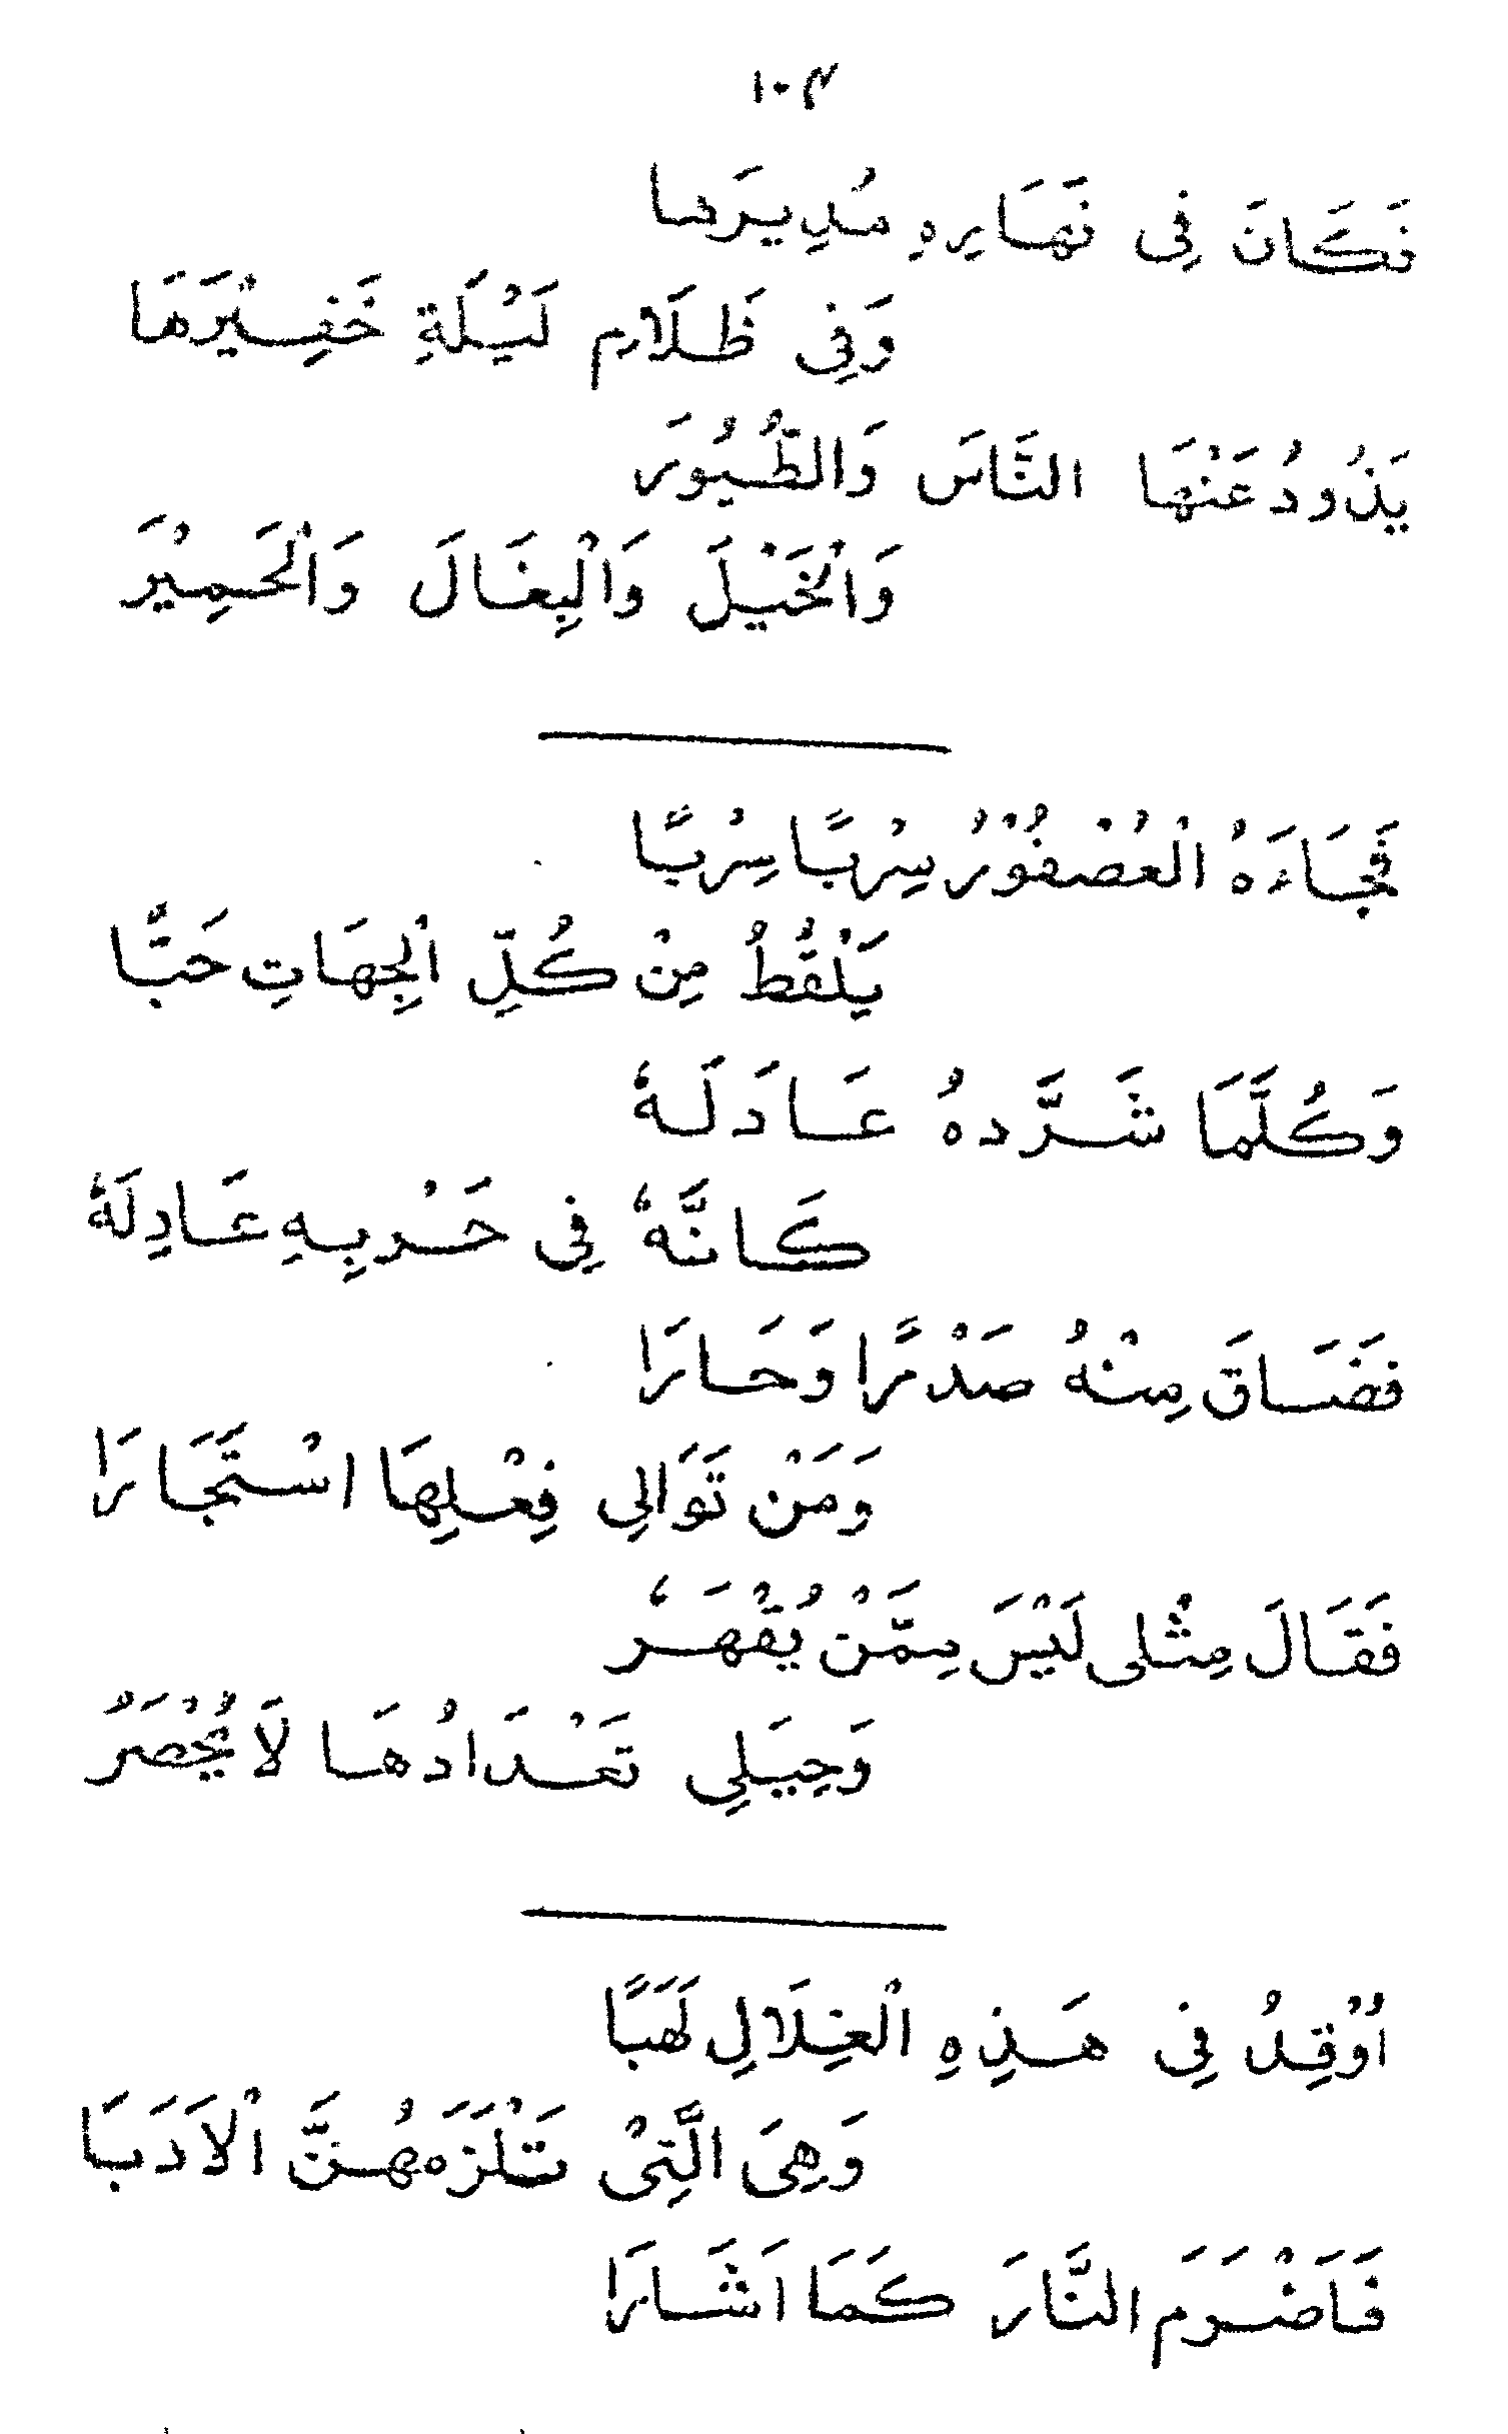 ١٠٣
فَكَانَ فِى نَهَارِهِ مُدِيرَها
وَفِى ظَلَامِ لَيْلَةِ خَفِيْرَهَا
يَذُودُ عَنْهَا النَّاسَ وَالطُّيُورَ
وَاْلخَيْلَ وَالْبِغَالَ وَاْلحَمِيْرَ
فَجَاءَهُ الْعُصْفُوْرُ سِرْبًا سِرْبًا
يَلْقُطُ مِنْ كُلِّ الْجِهَاتِ حَبَّا
وَكُلَّمَا شَرَّدهُ عَادَلَهُ
كَانَّهُ فِى حَرْبِهِ عَادِلَهُ
فَضَاقَ مِنْهُ صَدْرًا وَحَارَا
وَمَنْ تَوَالِى فِعْلِهَا اسْتَجَارَا
فَقَالَ مِثْلى لَيْسَ مِمَّنْ يُقْهَرُ
وَحِيَلِى تَعْدَادُهَا لَا يُحْصَرُ
اُوْقِدُ فِى هَذِهِ الْغِلَالِ لَهَبًا
وَهِىَ الَّتِىْ تَلْزَمَهُنَّ اْلاَدَبَا
فَاَضْرَمَ النَّارَ كَمَا اَشَارَا